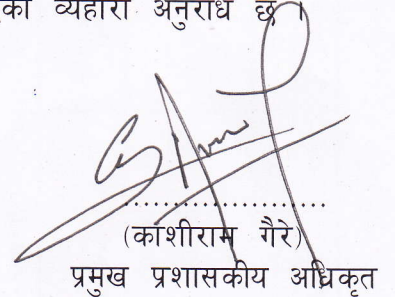 व्यहारा अनुराध छ ।
....................
(काशीराम गैरे)
प्रमुख प्रशासकीय अधिकृत